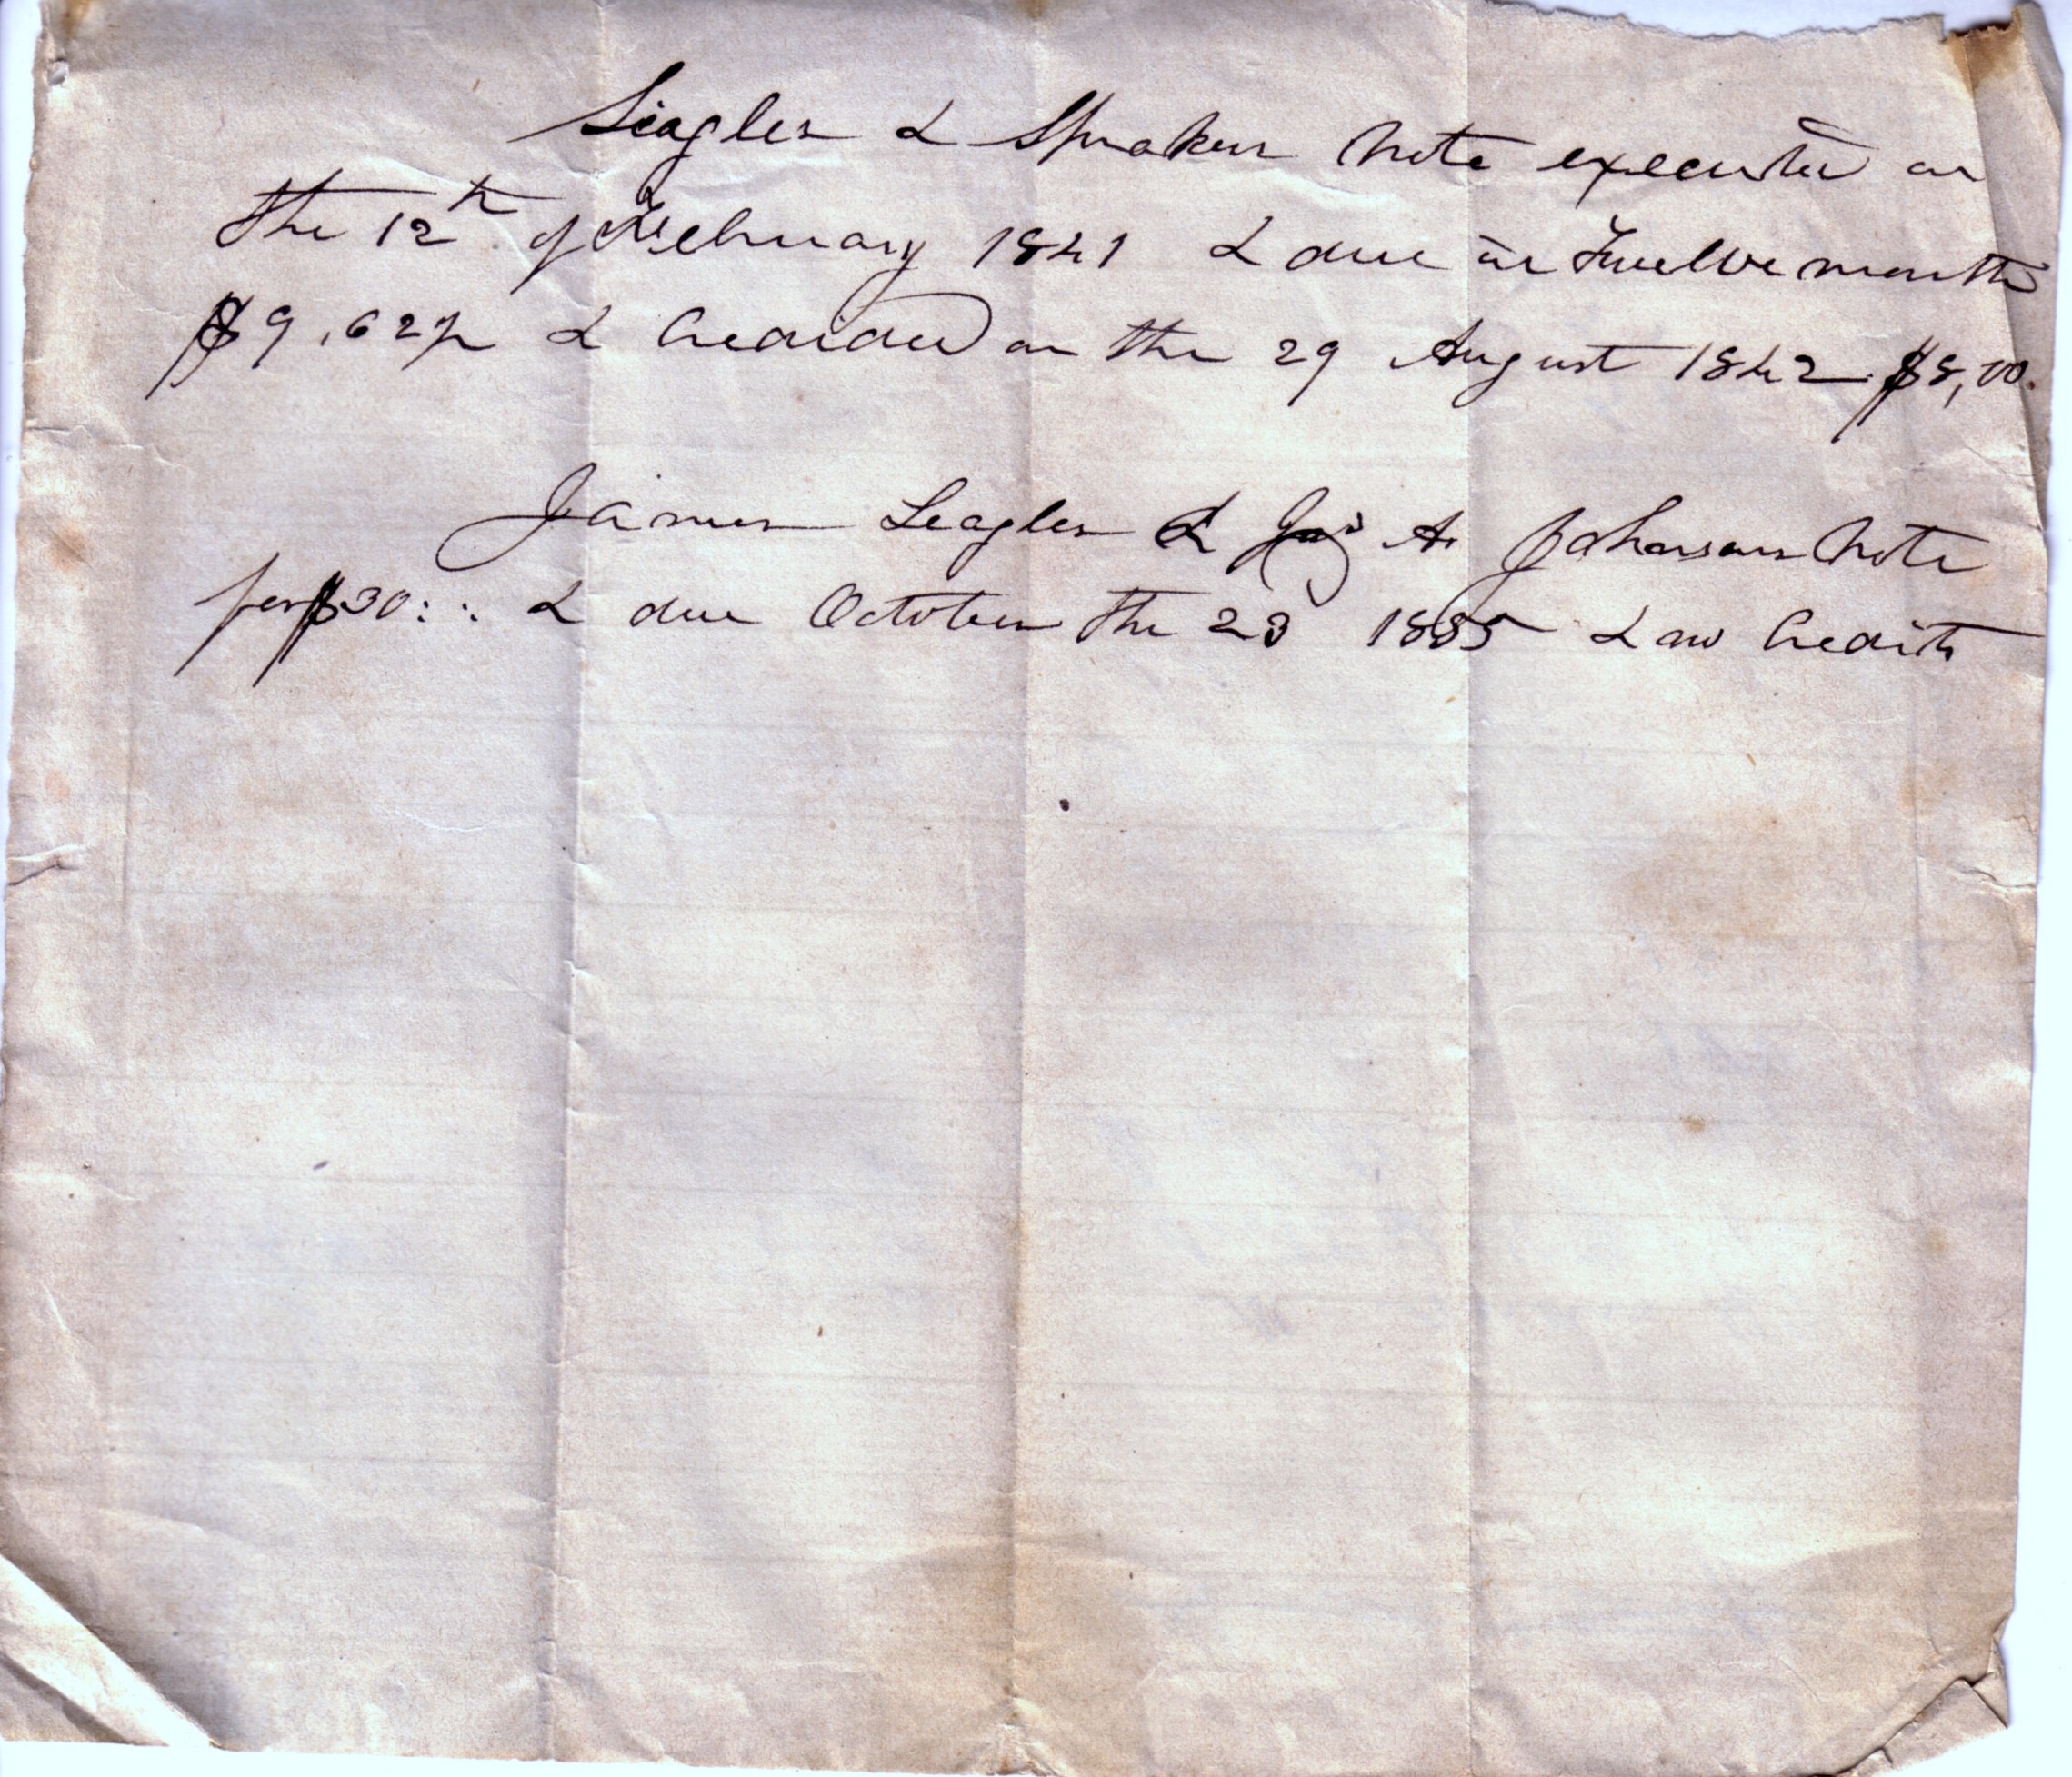 Seagles & Spraker note executed on
the 12th of February 1841 & due in Twelve months
$9,62½ & credided on the 29 August 1842 $8,00.
James Seagles & A Johnson note
for $30: : & due October the 23 1835 & credits